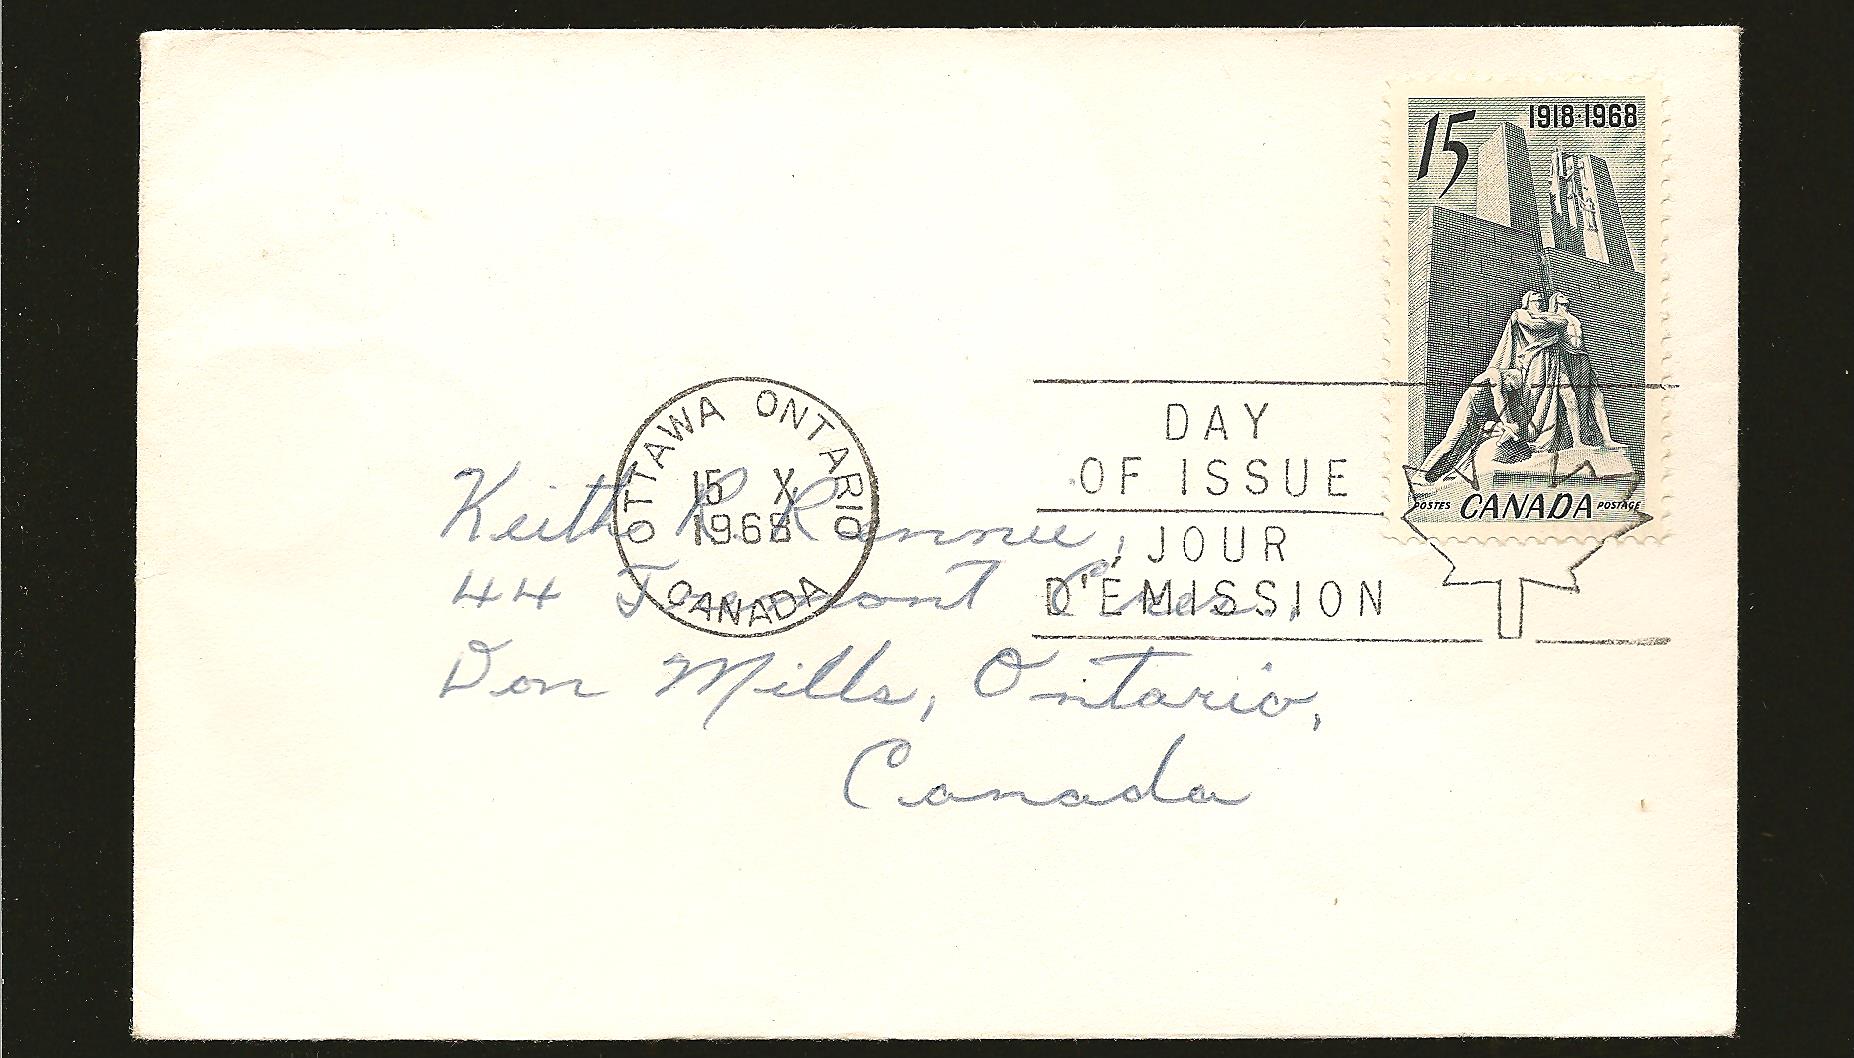 15 1918·1968
POSTES CANADA POSTAGE
OTTAWA ONTARIO
15 X
1968
CANADA
DAY
OF ISSUE
JOUR
D'ÉMISSION
Keith R.
44 Cres.,
Don Mills, Ontario,
Canada